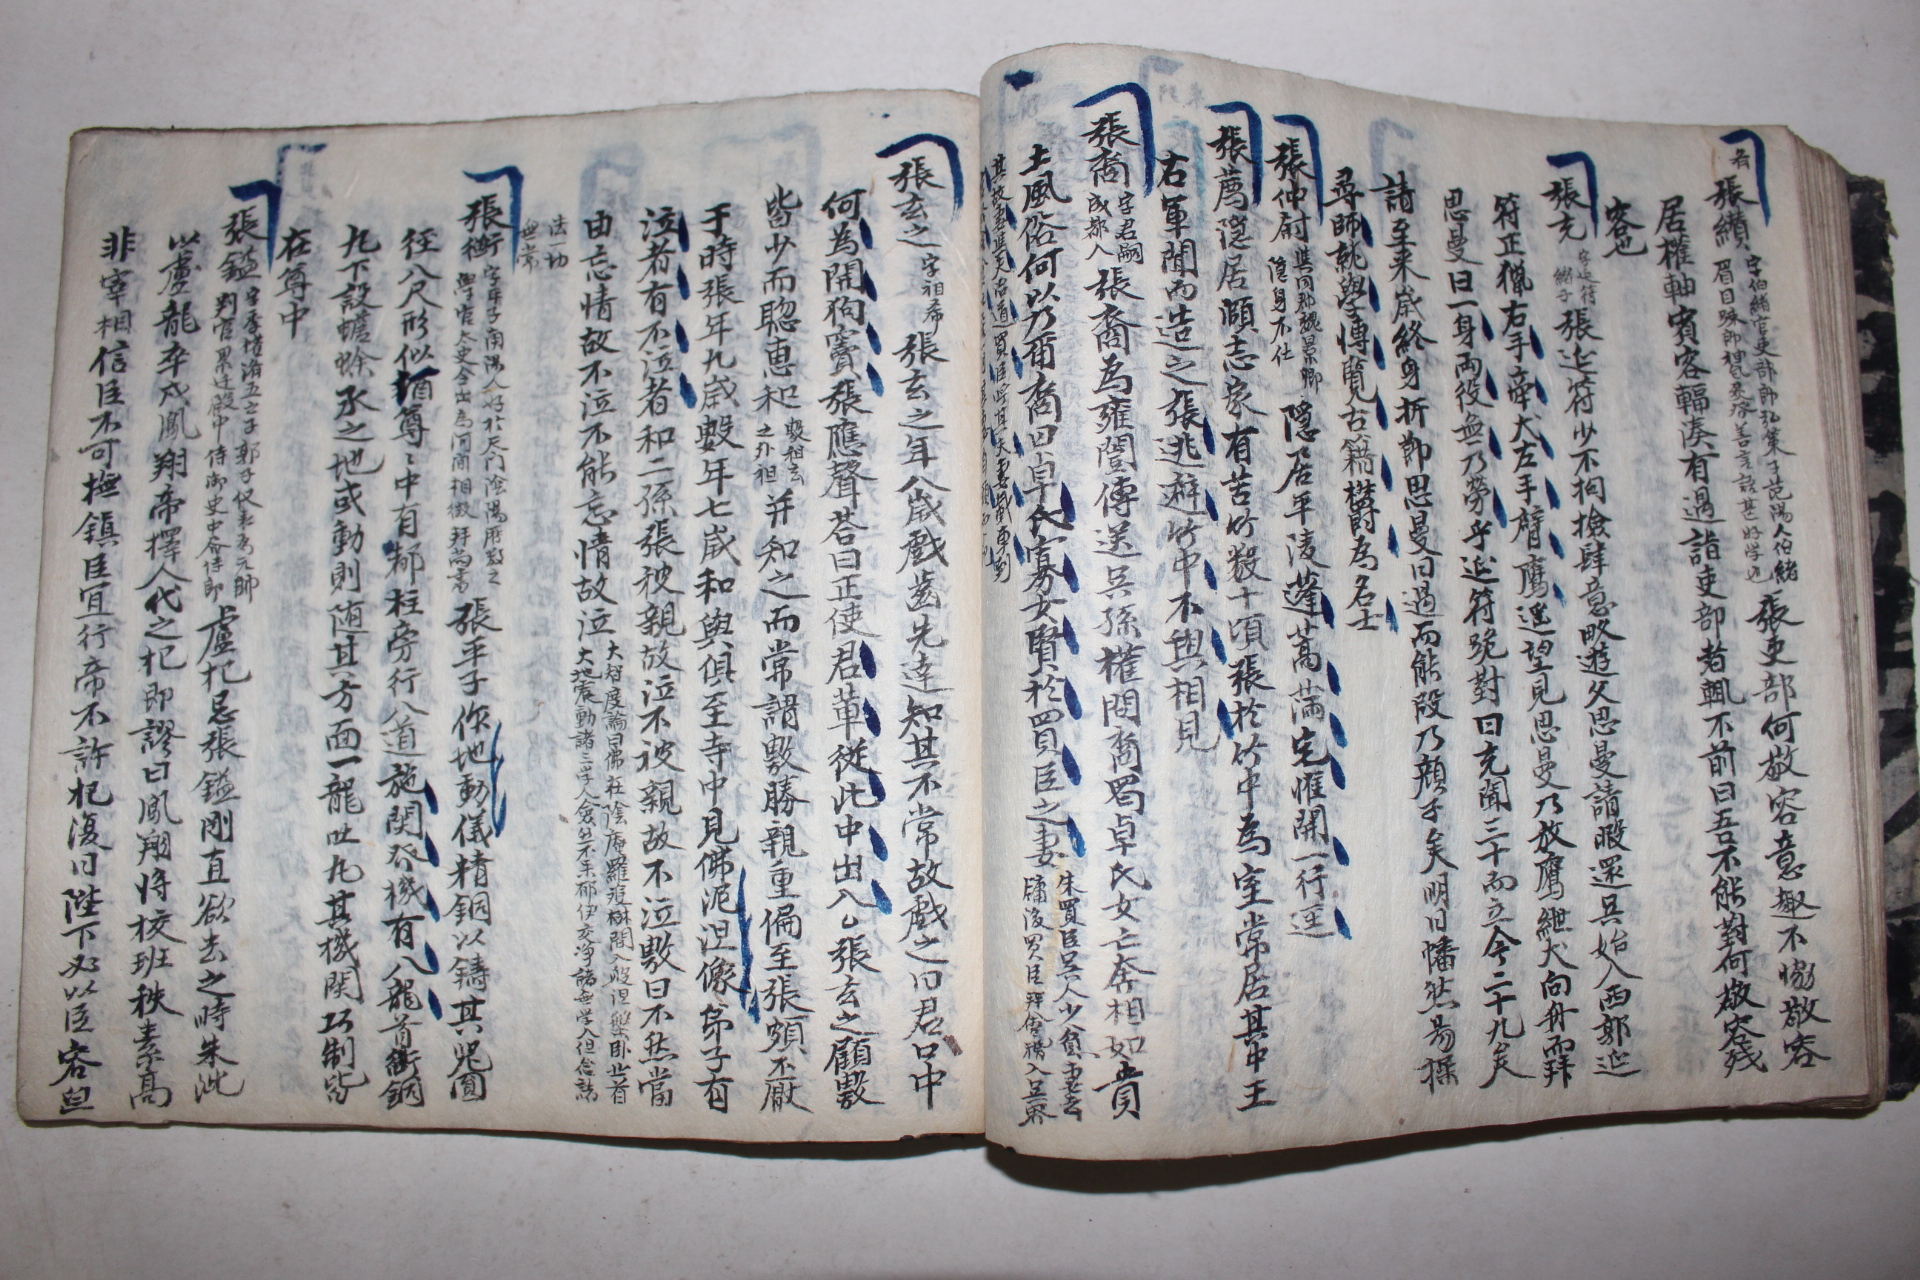 張纘 字伯緒官吏部師弘策子范陽人伯緒眉目疎朗 善言談甚好学也 張吏部何敬容意趣不協敬容
居權軸賓客輻湊有過詣吏部者輒不前曰吾不能對何敬容残
客也
張充 字延符緒子 張延符少不拘撿肆意畋遊父思曼請暇還吴始入西郭延
符正獵右手牽犬左手臂鷹遥望見思曼乃放鷹紲犬向舟而拜
思曼曰一身両役無乃勞乎延符跪對曰充聞三十而立今二十九矣
請至来歳終身折節思曼曰過而能改乃顔子矣明日幡然易操
尋師就學博覧古籍欝為名士
張仲尉 與同郡魏景卿隱身不仕 隱居平陵蓬蒿滿宅惟開一行逕
張薦隱居頥志家有苦竹数十頃張於竹中為室常居其中王
右軍聞而造之張逃避竹中不與相見
張裔 字君嗣成都人 張裔為雍闓傳送吴孫權問裔蜀卓氏女亡奔相如貴
土風俗何以乃爾裔曰卓氏寡女賢於買臣之妻 朱買臣吴人少貧妻去
張玄之 字祖希 張玄之年八歳戯歯先達知其不常故戯之曰君口中
何為開狗竇張應聲荅曰正使君輩從此中出入乚張玄之顧敷
皆少而聡恵和 敷祖玄之外祖 并知之而常謂敷勝親重偏至張頗不厭
于時張年九歳敷年七歳和與俱至寺中見佛泥洹像弟子有
泣者有不泣者和二孫張被親故泣不被親故不泣敷曰不然當
由忘情故不泣不能忘情故泣 大智度論曰佛在陰庵羅雙樹間入般涅槃臥北首大地震動諸三學人僉然不楽郁伊交涕諸無学人但念諸
法一切無常
張衡 字平子南陽人好於天门陰陽暦筭之學官太史令出為河間相徴拜尚書 張平子作地動儀精銅以鑄其噐圓
徑八尺形似酒尊〻中有都柱旁行八道施関發機有八龍首銜銅
九下設蟾蜍承之地或動則随其方面一龍吐九其機関巧制皆
在尊中
張鎰 判官累迁殿中侍御史中 盧杞忌張鎰剛直欲去之時朱泚
以盧龍卒戍鳳翔帝擇人代之杞即謬曰鳳翔将校班秩素高
非宰相信臣不可撫鎮臣宜行帝不許杞復曰陛下必以臣容皃